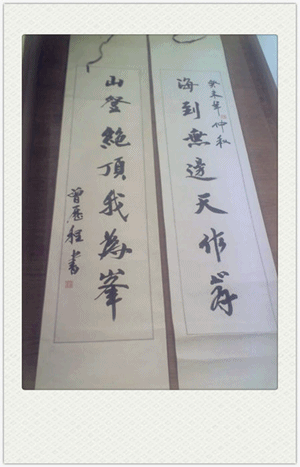 癸未年仲秋
海到無邊天作岸
山登絶頂我為峯
曾歷程書